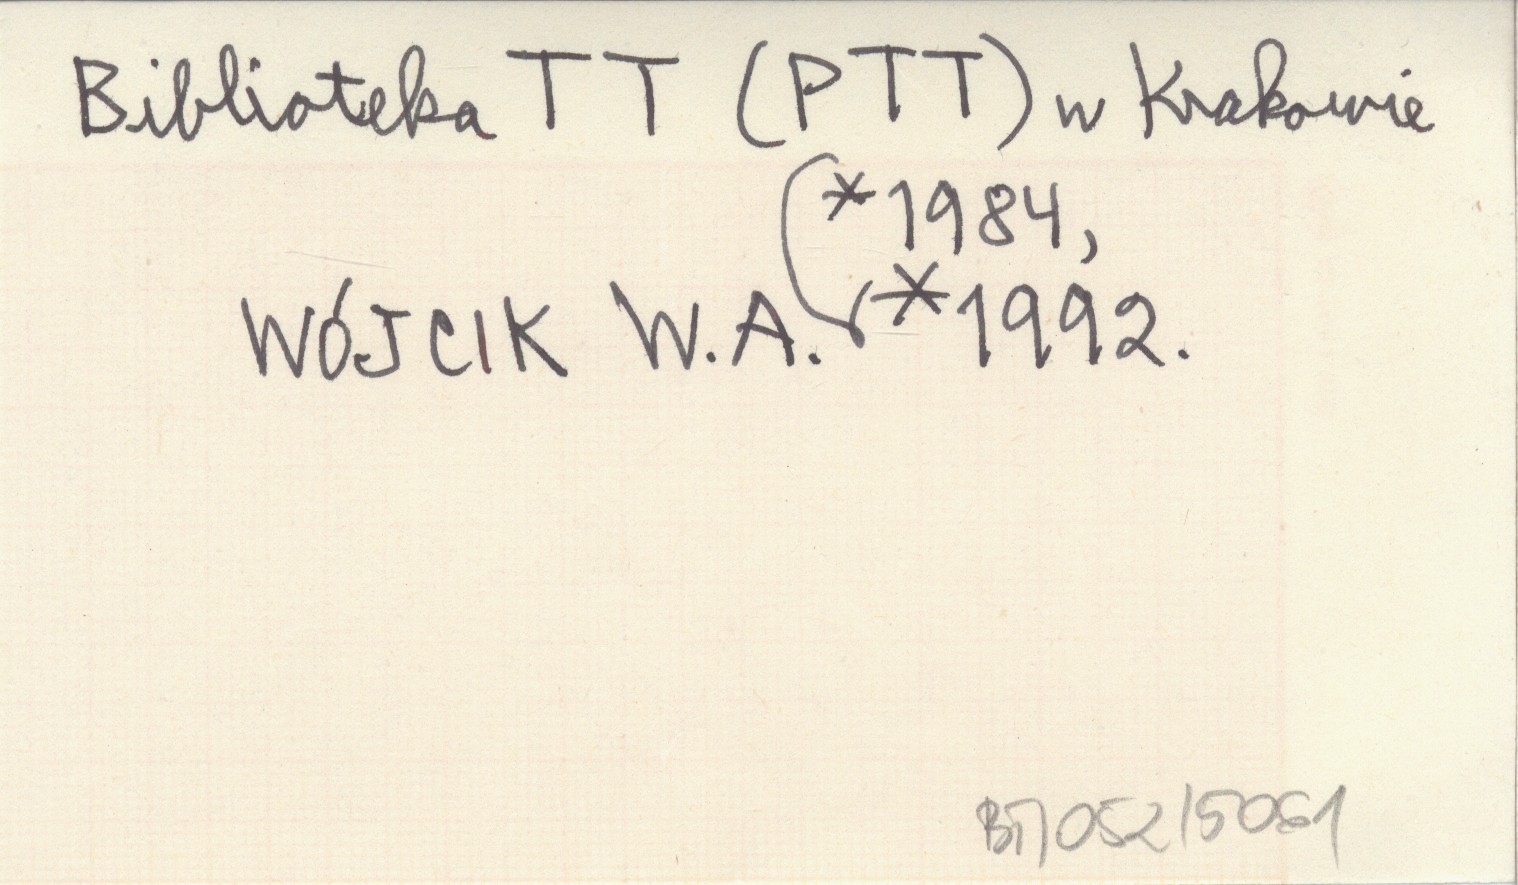 Biblioteka TT (PTT) w Krakowie
*1984,
WÓJCIK W.A. *1992.
BT/052/5061